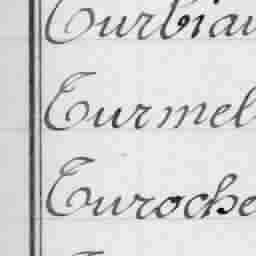 Turbiau
Turmel
Turoche